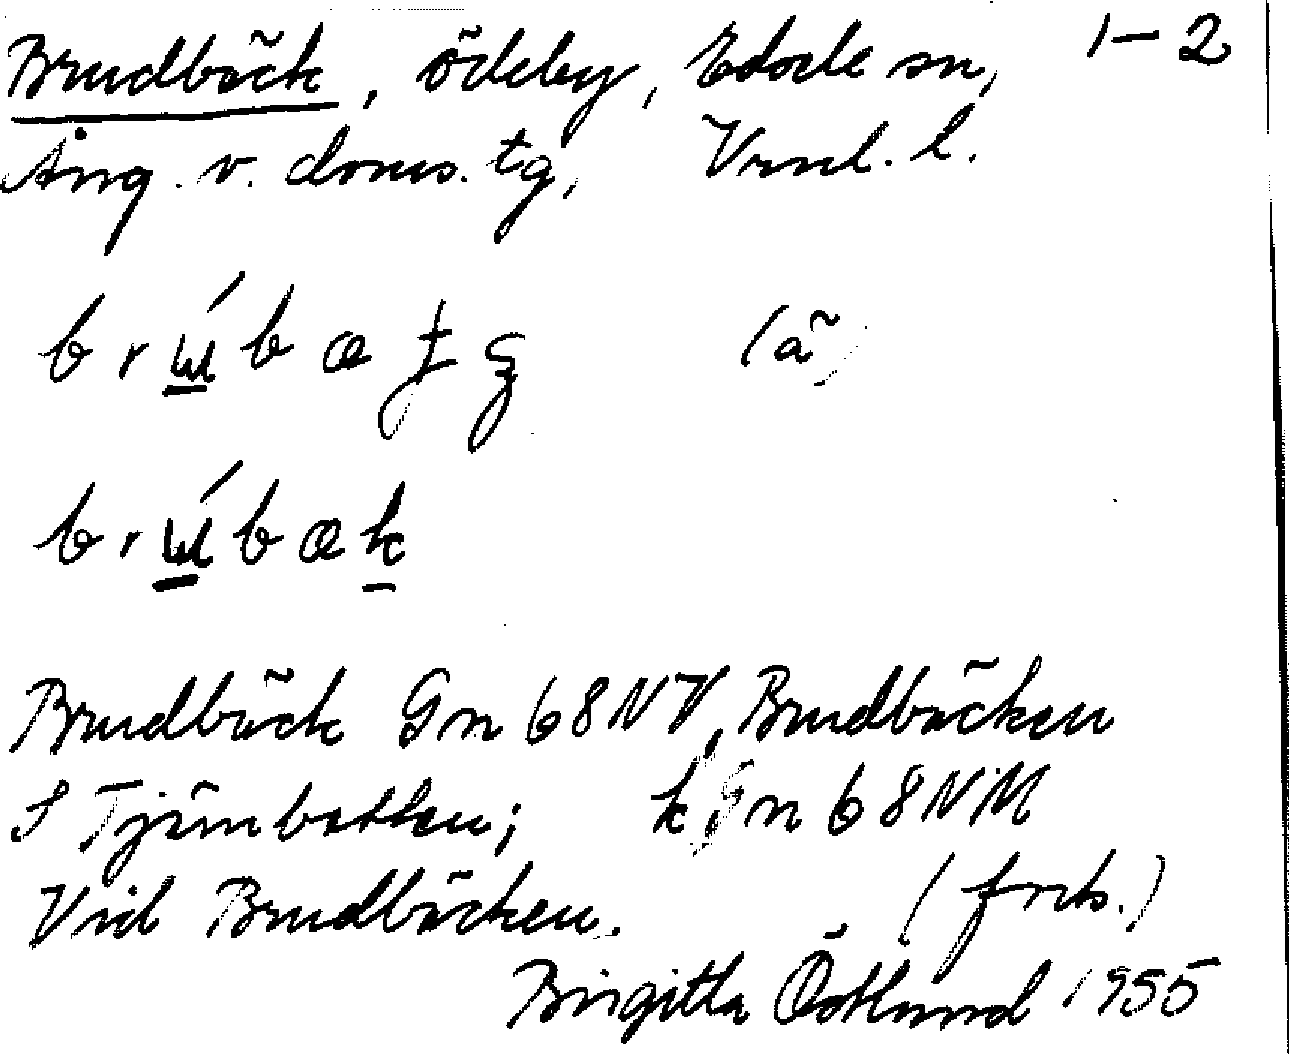 Brudbäck, ödeby, Edsele sn, 1–2
Ång. v. doms. tg, Vrnl. l.
(ä)
Brudbäck Gn 68NV, Brudbäcken
S Tjärnbotten; k Gn 68NM
Vid Brudbäcken. (forts.)
Birgitta Östlund 1955